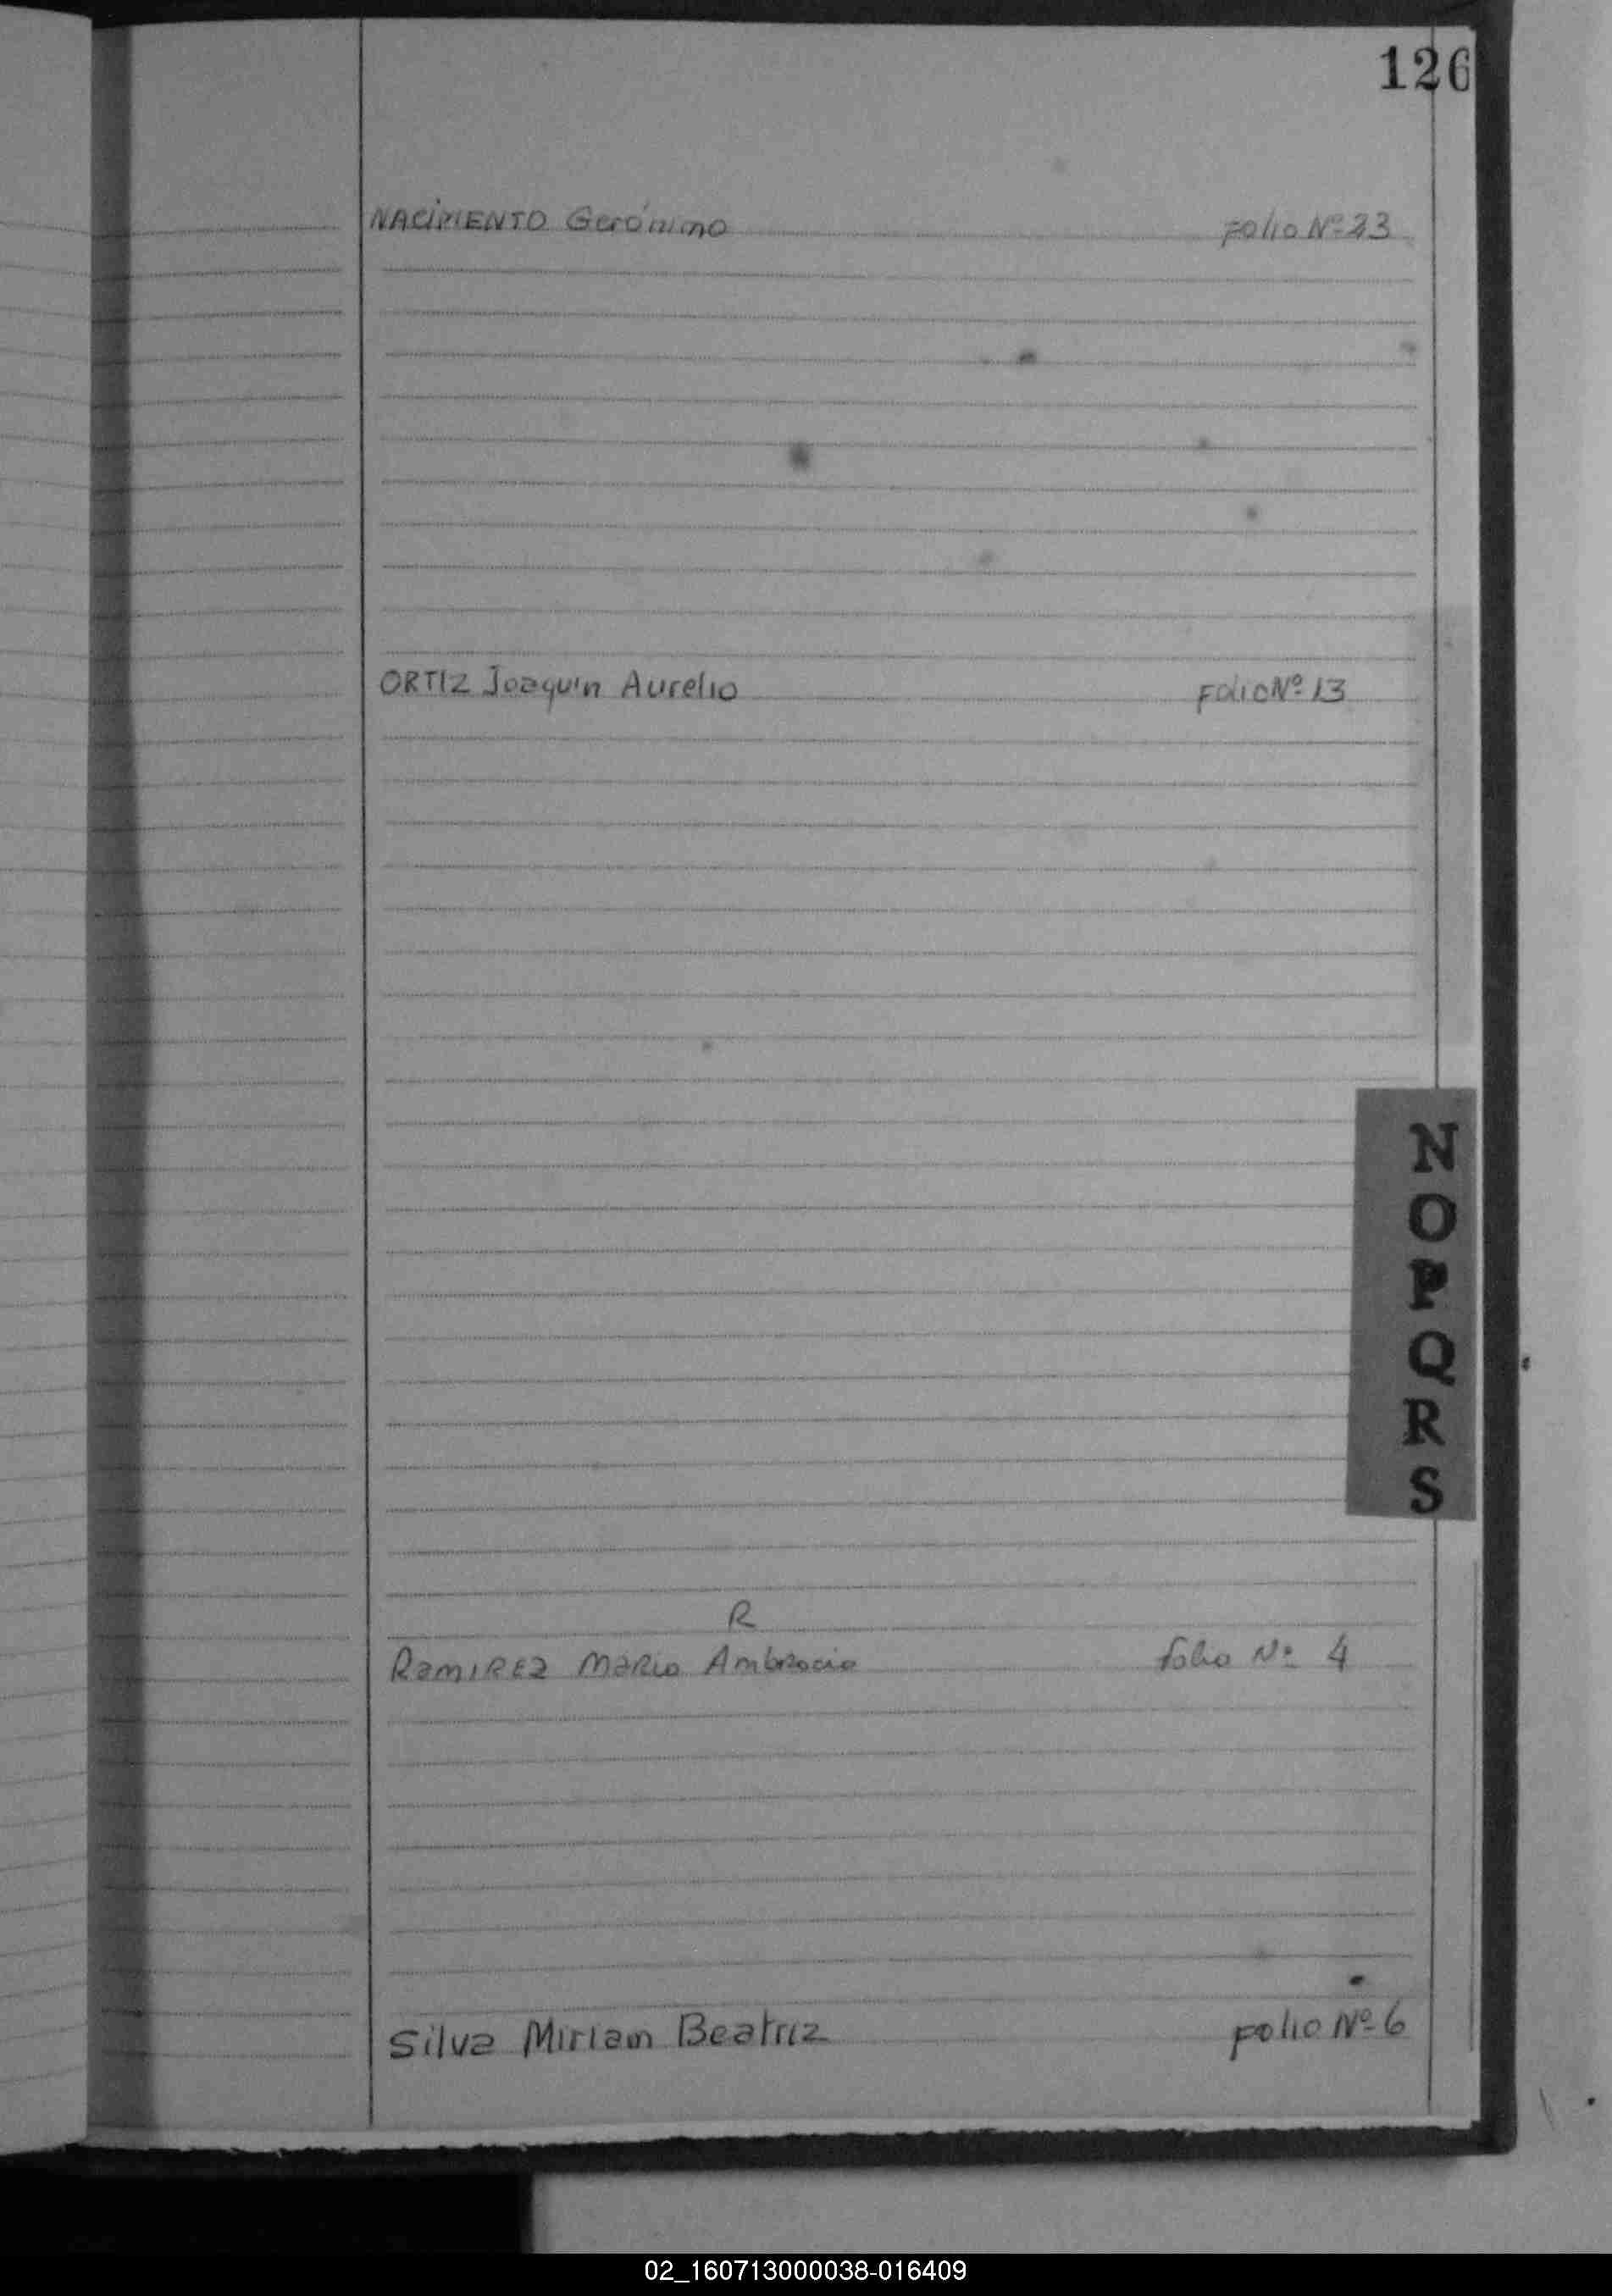 126
NACIMIENTO Gerónimo Folio Nº 23
ORTIZ Joaquin Aurelio Folio Nº 13
N
O
P
Q
R
S
R
RamIREZ MaRio Ambrocio folio Nº 4
Silva Miriam Beatriz Folio Nº 6
02_160713000038-016409